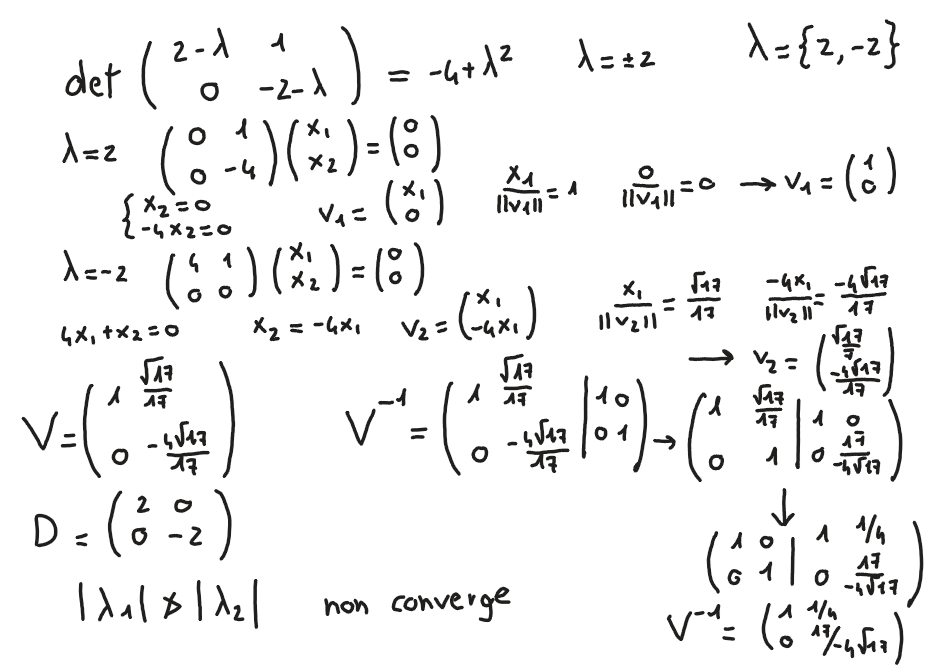 det ( 2-λ 1 ; 0 -2-λ ) = -4+λ² λ=±2 λ={2,-2}
λ=2 ( 0 1 ; 0 -4 ) ( x₁ ; x₂ ) = ( 0 ; 0 )
{ x₂=0 ; -4x₂=0 v₁= ( x₁ ; 0 ) x₁/||v₁|| = 1 0/||v₁|| = 0 → v₁ = ( 1 ; 0 )
λ=-2 ( 4 1 ; 0 0 ) ( x₁ ; x₂ ) = ( 0 ; 0 )
4x₁+x₂=0 x₂ = -4x₁ v₂= ( x₁ ; -4x₁ ) x₁/||v₂|| = √17/17 -4x₁/||v₂|| = -4√17/17
→ v₂ = ( √17/7 ; -4√17/17 )
V= ( 1 √17/17 ; 0 -4√17/17 ) V⁻¹ = ( 1 √17/17 | 1 0 ; 0 -4√17/17 | 0 1 ) → ( 1 √17/17 | 1 0 ; 0 1 | 0 17/-4√17 )
↓
D = ( 2 0 ; 0 -2 ) ( 1 0 | 1 1/4 ; 0 1 | 0 17/-4√17 )
|λ₁| ≯ |λ₂| non converge V⁻¹= ( 1 1/4 ; 0 17/-4√17 )